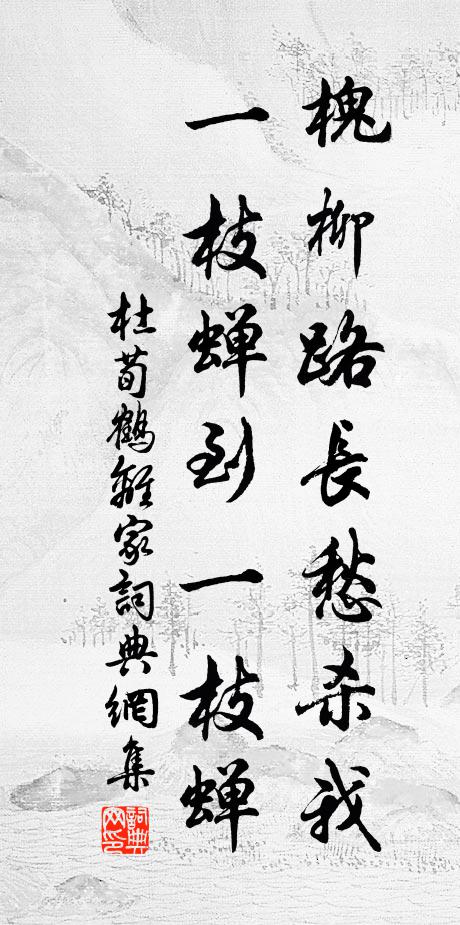 槐柳路長愁杀我
一枝蝉到一枝蝉
杜荀鶴離家詞典網集
詞典網印